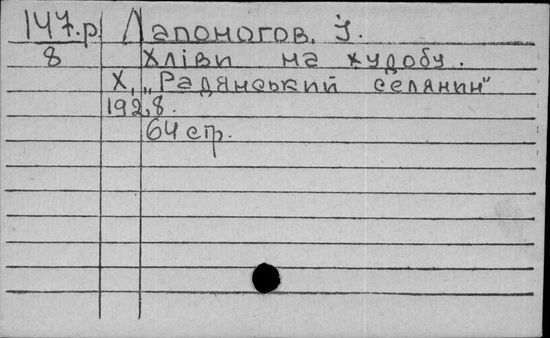 147.р. Лапоногов. І.
8 Хліви на худобу.
Х, „Радянський селянин"
1928.
64 стр.